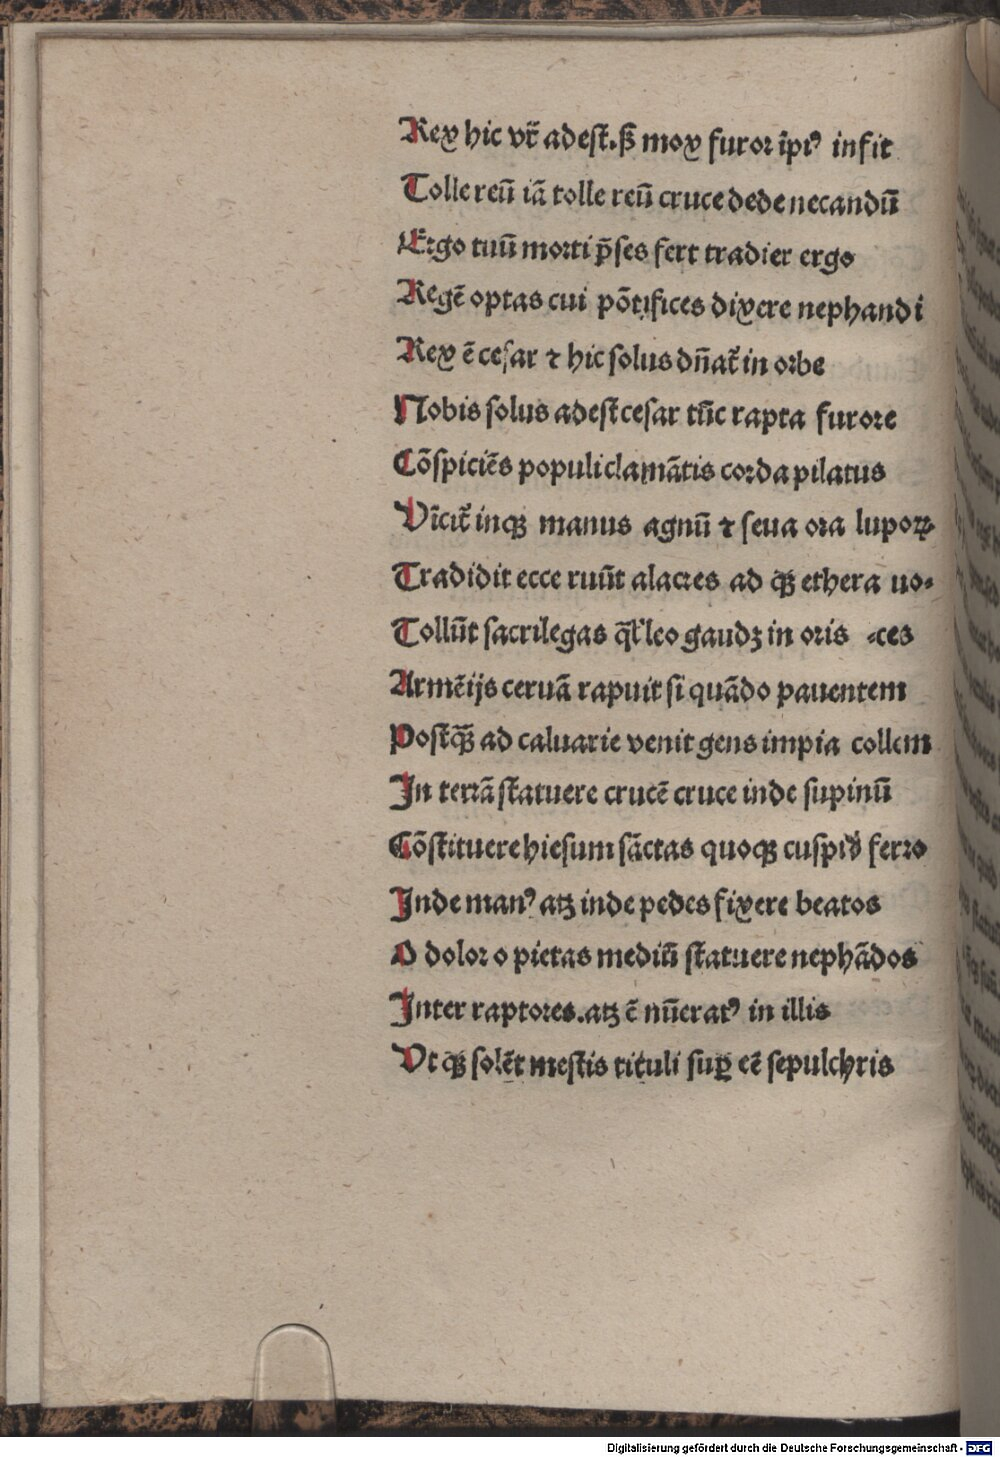 Rex hic vr̄ adest. ſꝫ mox furor īpiꝰ infit
Tolle reū iā tolle reū cruce dede necandū
Ergo tuū morti p̄ses fert tradier ergo
Regē optas cui pōtifices dixere nephandi
Rex ē cesar ⁊ hic solus dn̄at̄ in orbe
Nobis solus adest cesar tūc rapta furore
Cōspiciēs populi clamātis corda pilatus
Vīcit̄ inqꝫ manus agnū ⁊ seua ora lupoꝝ
Tradidit ecce ruūt alacres ad qꝫ ethera uo-
Tollūt sacrilegas q̄l' leo gaudꝫ in oris -ces
Armētijs ceruā rapuit si quādo pauentem
Postqꝫ̄ ad caluarie venit gens impia collem
In terrā statuere crucē cruce inde supinū
Cōstituere hiesum sāctas quoqꝫ cuspis ferro
Inde manꝰ atqꝫ inde pedes fixere beatos
O dolor o pietas mediū statuere nephādos
Inter raptores. atqꝫ ē nūeratꝰ in illis
Vt qꝫ solēt mestis tituli suꝑ eē sepulchris
Digitalisierung gefördert durch die Deutsche Forschungsgemeinschaft - DFG